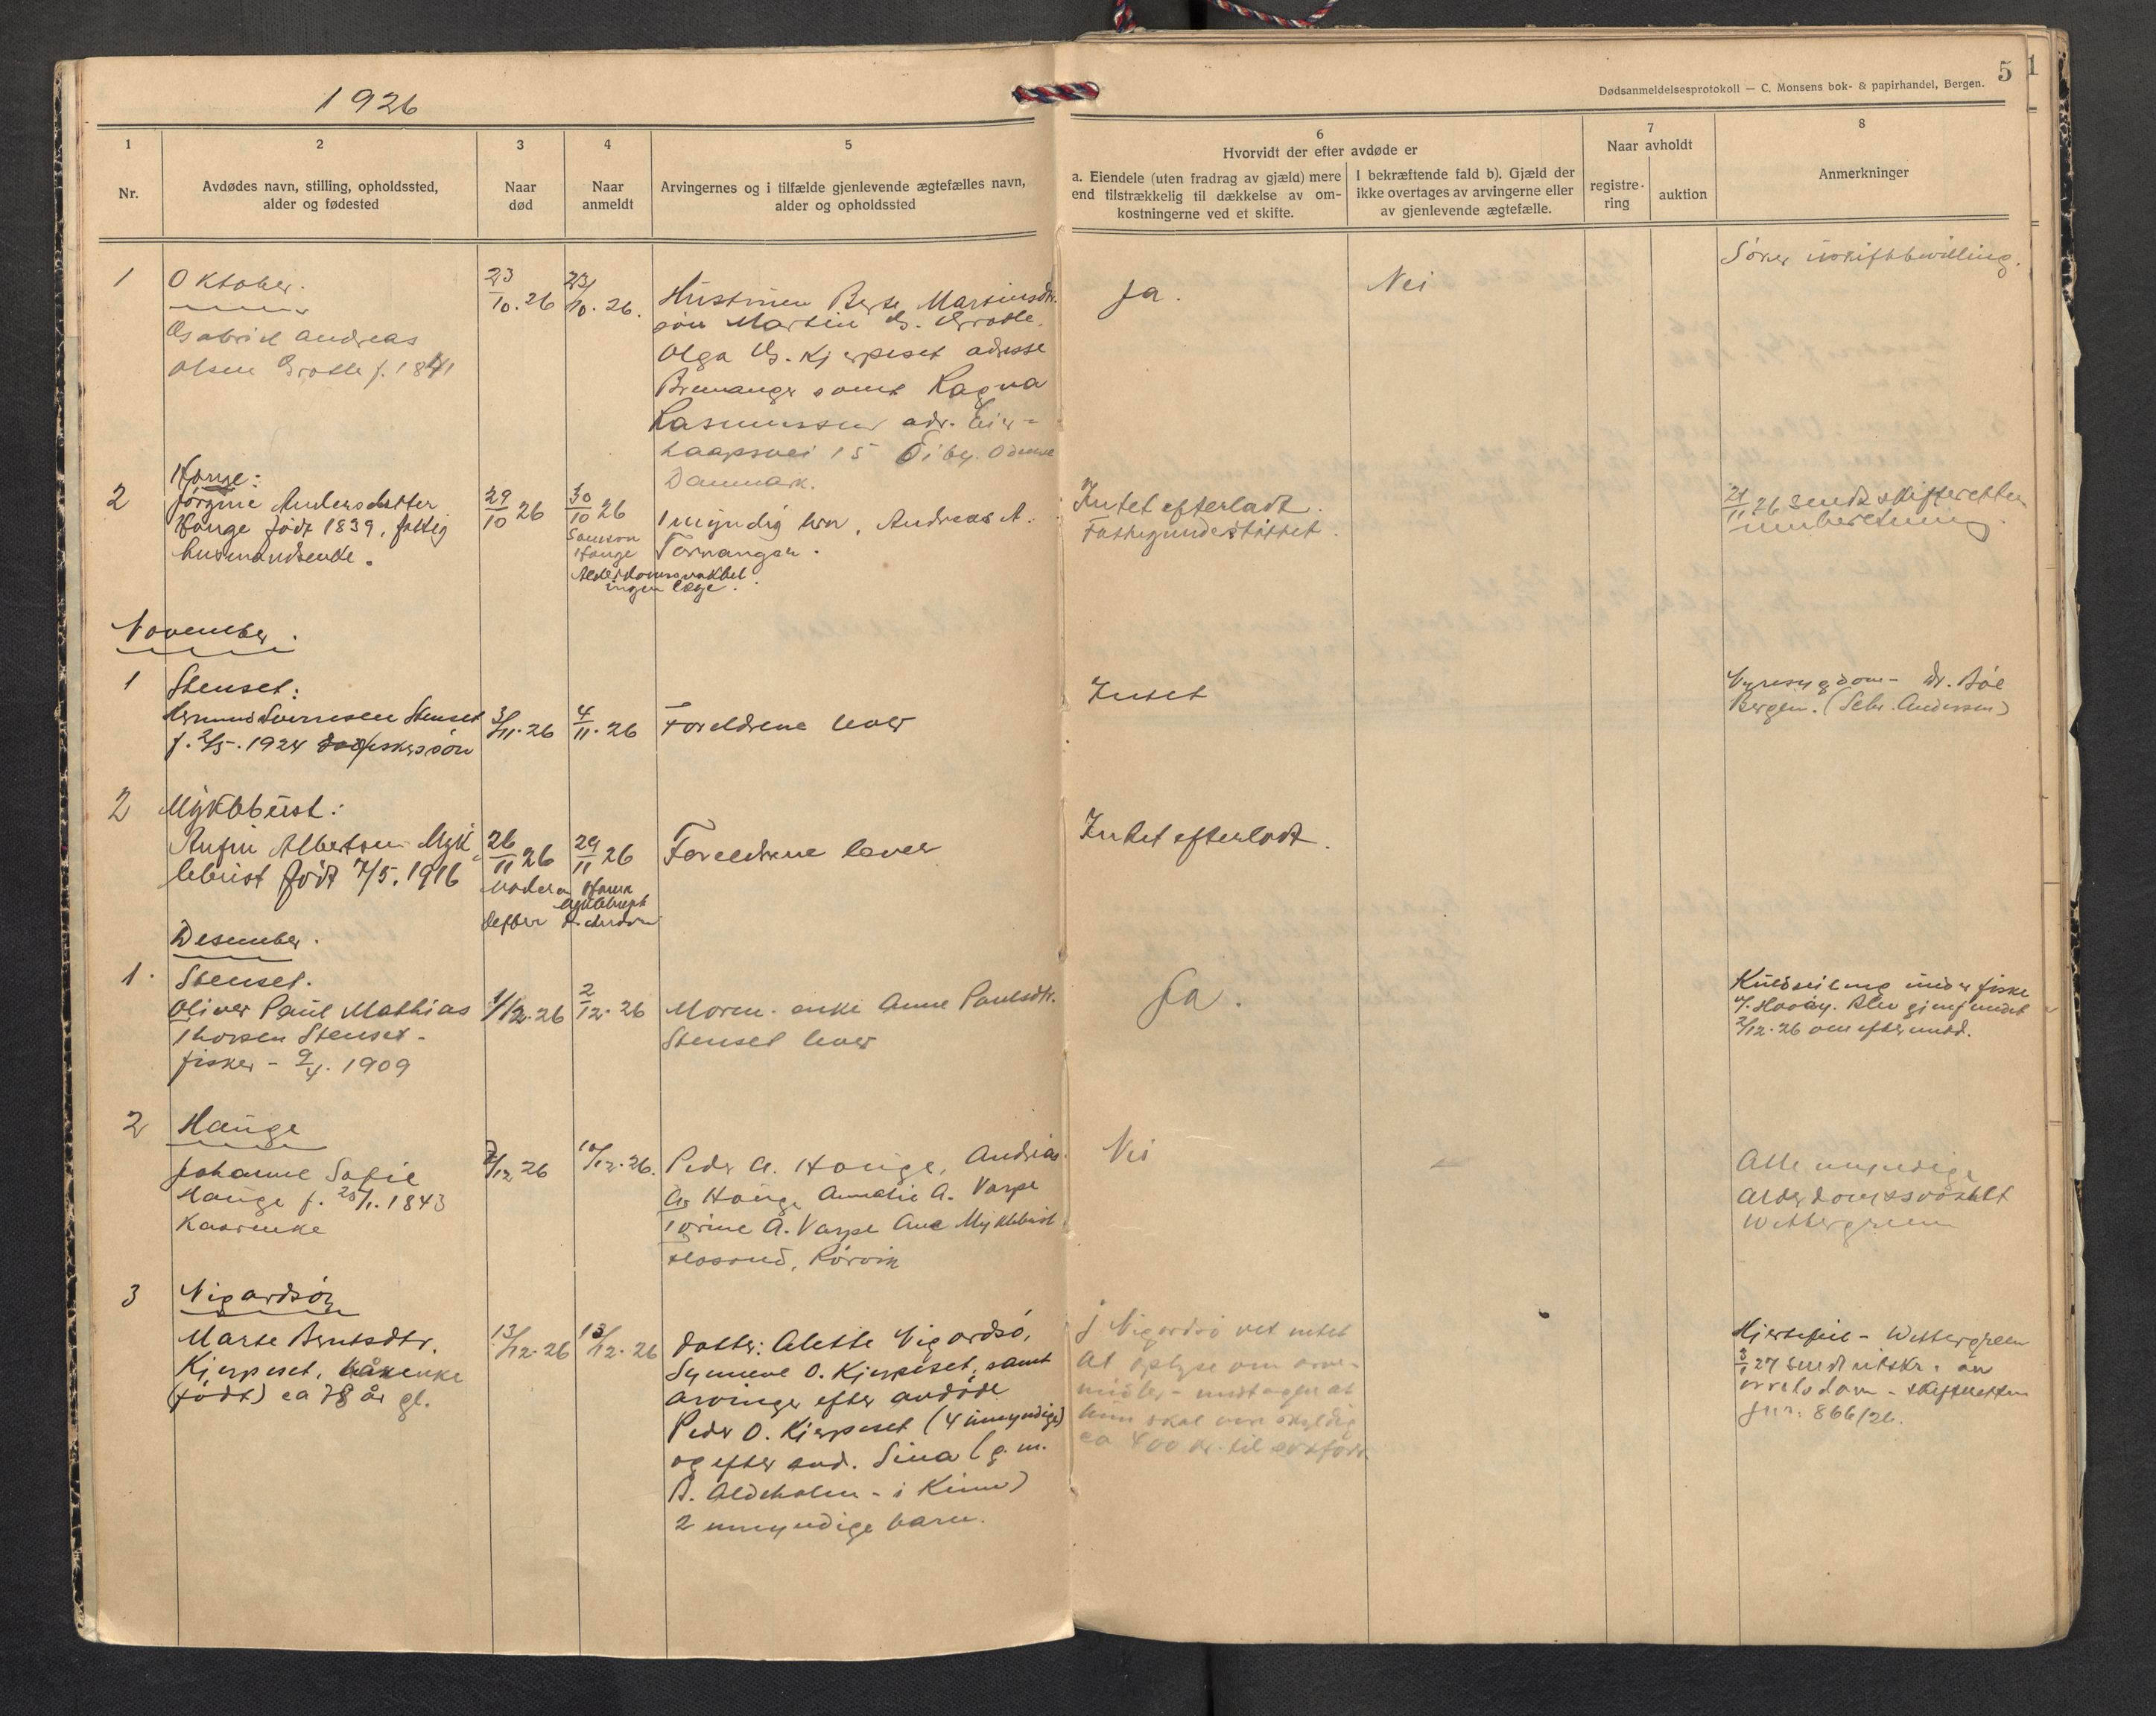 1926
Dødsanmeldelsesprotokoll — C. Monsens bok- & papirhandel, Bergen.
5
1
1
2
3
4
5
6
7
8
Nr.
Avdødes navn, stilling, opholdssted,
alder og fødested
Naar
død
Naar
anmeldt
Arvingernes og i tilfælde gjenlevende ægtefælles navn,
alder og opholdssted
Hvorvidt der efter avdøde er
a. Eiendele (uten fradrag av gjæld) mere
end tilstrækkelig til dækkelse av om-
kostningerne ved et skifte.
I bekræftende fald b). Gjæld der
ikke overtages av arvingerne eller
av gjenlevende ægtefælle.
Naar avholdt
registre-
ring
auktion
Anmerkninger
1
Oktober.
Gabriel Andreas
Olsen Grotle f. 1841
23/10. 26
23/10. 26.
Hustruen Berte Martinsdtr.
søn Martin G. Grotle.
Olga G. Kjerpeset adresse
Bremanger samt Ragna
Rasmussen adr.
15 Odense
Danmark.
Ja.
Nei
Søker uskiftbevilling.
2
Hauge:
Jørgine Andersdatter
Hauge født 1839, fattig
husmandsenke.
29/10 26
30/10 26
Samson
Hauge
Alderdomssvakhet
ingen læge.
1 myndig søn, Andreas A.
Intet efterladt.
Fattigunderstøttet.
26 sendt skifteretten
November.
1
Stenset:
Sverresen Stenset
f. 2/5. 1924 fiskersøn
3/11. 26
4/11. 26
Foreldrene lever
Intet
Nyresygdom - Dr. Bøe
Bergen. (Andersen)
2
Myklebust:
Anfin Albertsen Myk-
lebust født 7/5. 1916
26/11 26
29/11 26
Foreldrene lever
Intet efterladt.
Desember.
1.
Stenset.
Oliver Paul Mathias
Thorsen Stenset -
fisker - 9/4. 1909
1/12. 26
2/12. 26
Moren - enke Anne Paulsdtr.
Stenset lever
Ja.
Kuldseiling under fiske
Blev gjenfundet
2/12. 26
2
Hauge
Johanne Sofie
Hauge f. 25/1. 1843
Kaarenke
7/12 26
10/12. 26.
Peder A. Hauge, Andreas
A. Hauge, A. Varpe
A. Varpe Ane Myklebust
Rørvik
Nei
Alle myndige
Alderdomssvakhet
Wettergreen
3
Nigardsøy
Marte Berntsdtr.
Kjerpeset, kårenke
(født) ca 78 år gl.
13/12. 26
13/12. 26
Datter: Alette Nigardsø,
Synneve O. Kjerpeset, samt
arvinger efter avdøde
Peder O. Kjerpeset (4 umyndige)
og efter avd. Sina (g. m.
A. Aldeholm - i Kinn)
2 umyndige barn.
J Nigardsø vet intet
at oplyse om
midler - antager at
hun skal være skyldig
ca 400 kr. til
Hjertefeil - Wettergreen
3/1 27 sendt utskr. av
- skifteretten
jnr: 866/26.